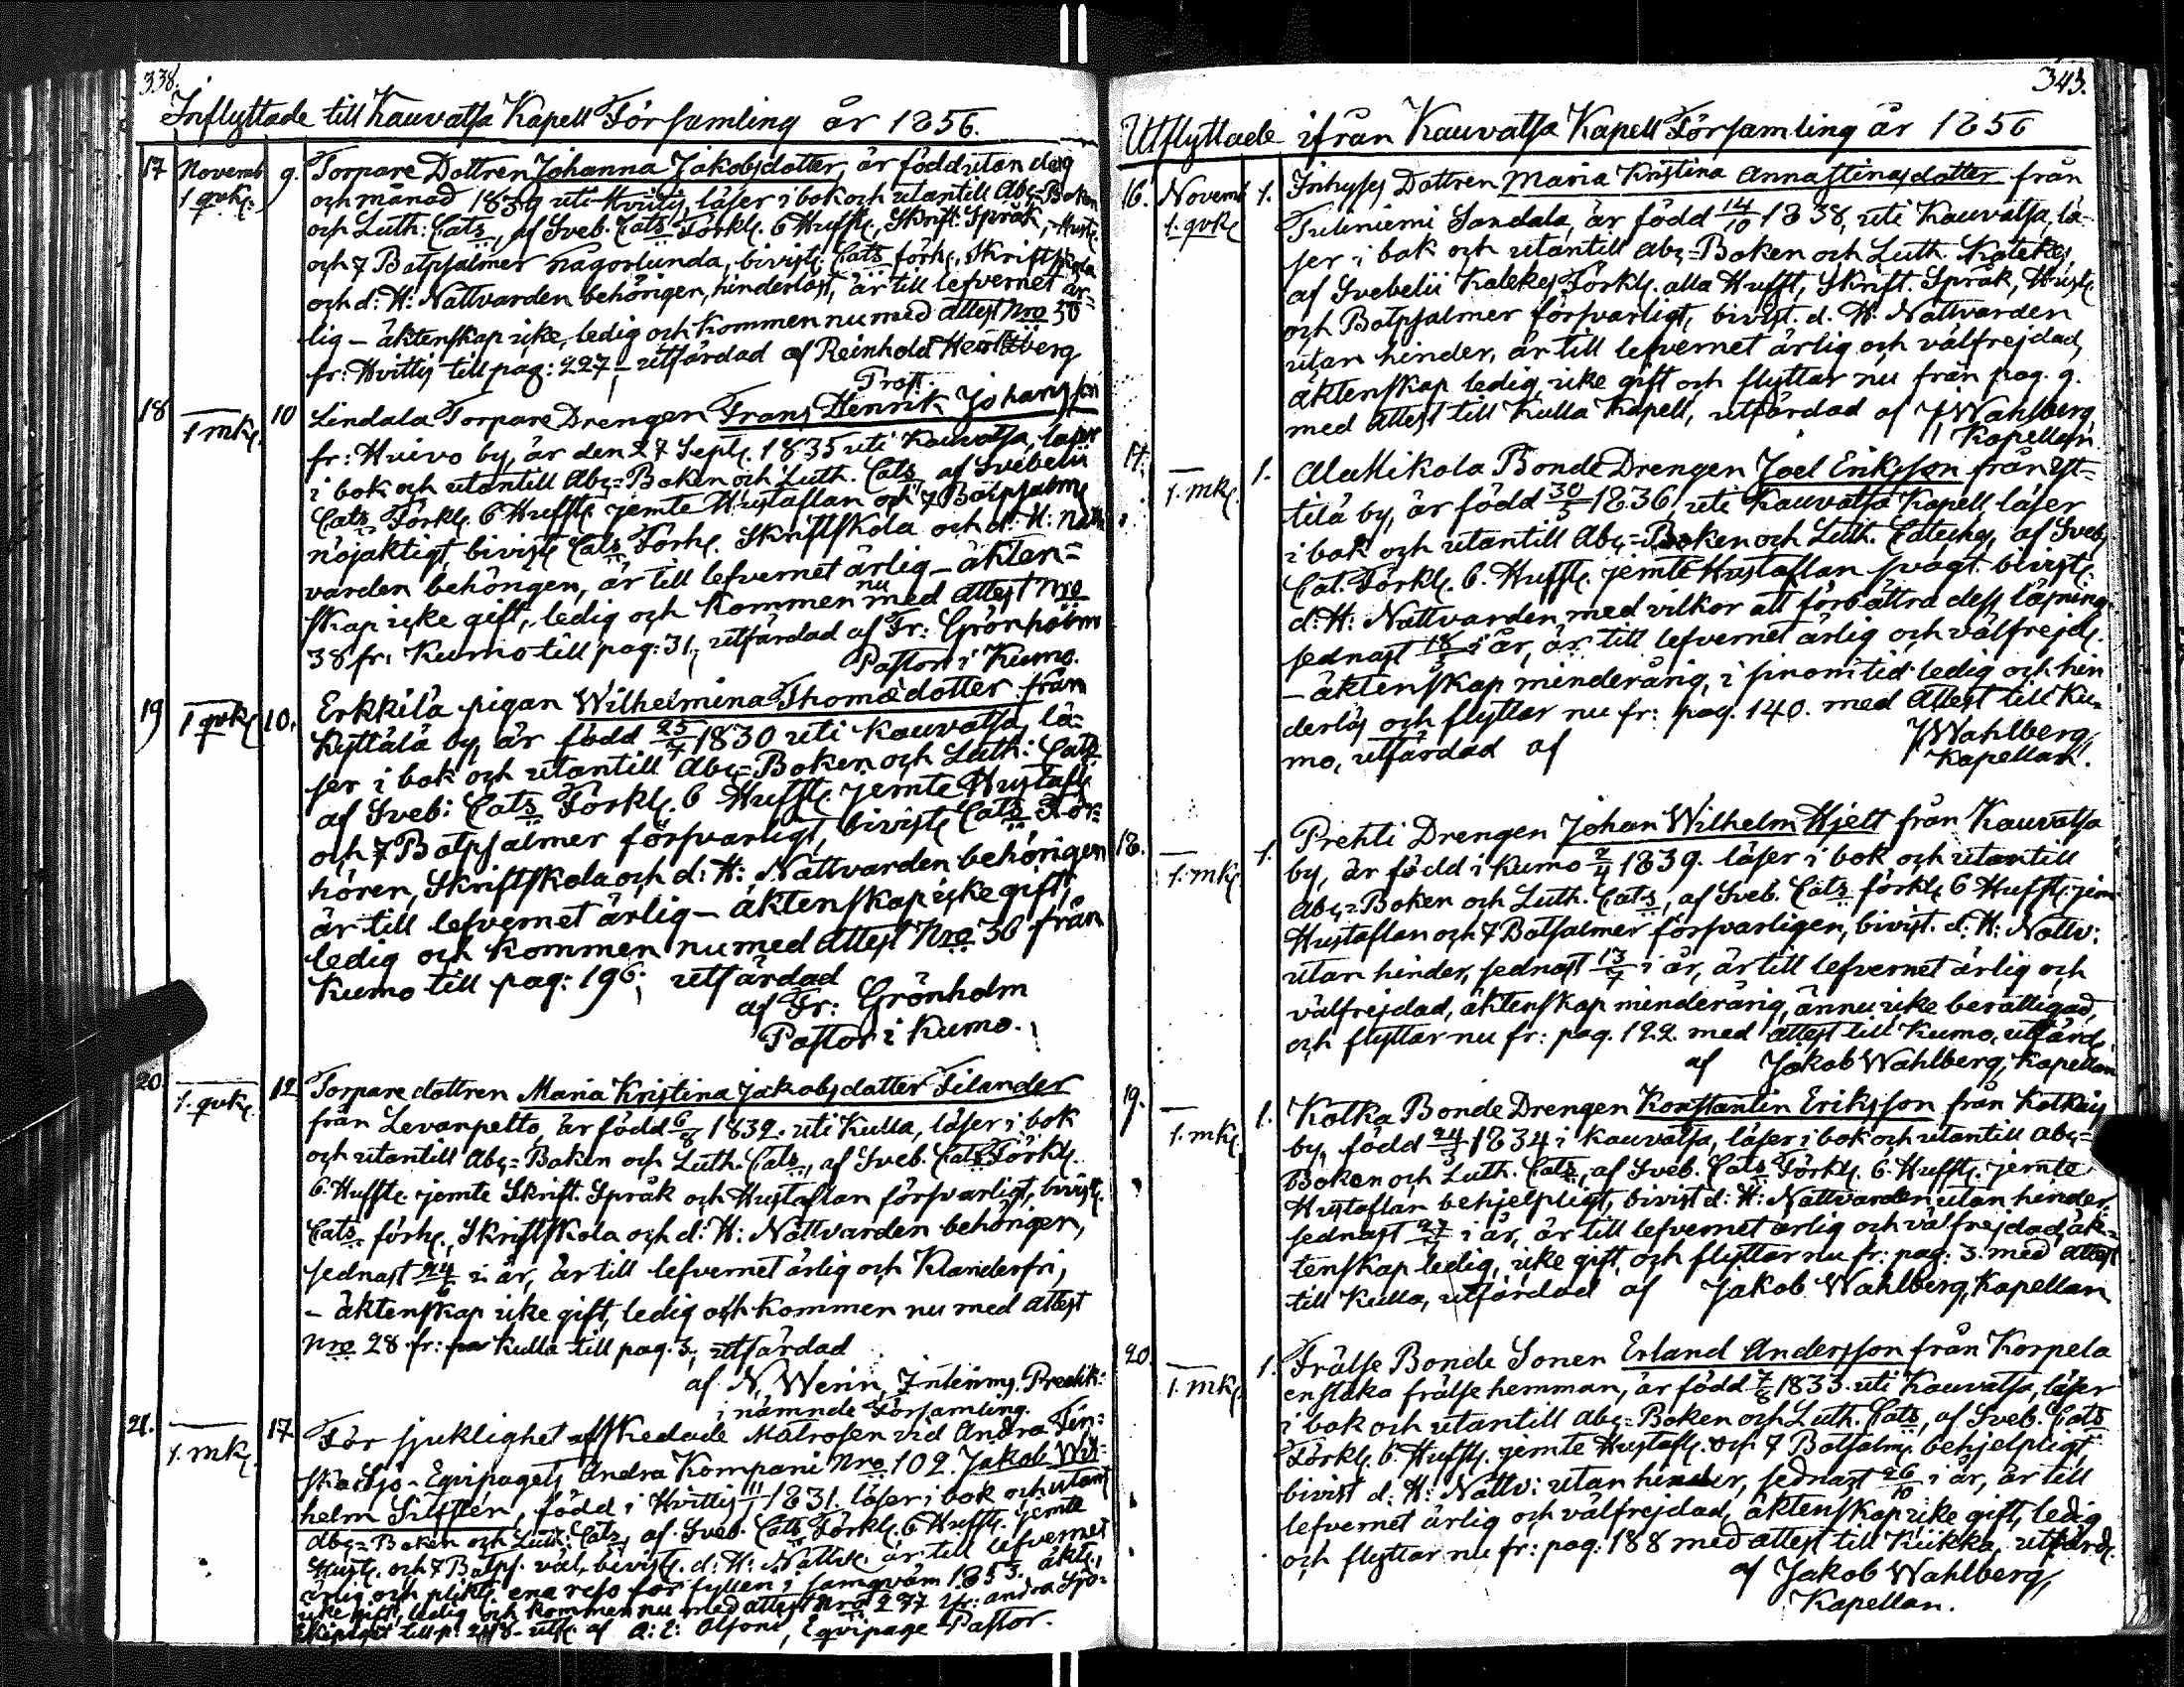 338.
Inflyttade till Kauvatsa Kapell Församling år 1856.
17 Novemb 9. Torpare Dottren Johanna Jakobsdotter, är född utan dag
1 qvk. och månad 1839 uti Hvittis, läser i bok och utantill Abc=Boken
och Luth: Cats, af Sveb. Cats Förkl. 6 Hufst, Skrift. Språk, Hust.
och 7 Botpsalmer någorlunda, bivist. Cats förh., Skriftskola
och d: H: Nattvarden behörigen, hinderlöst, är till lefvernet är=
lig – äktenskap icke, ledig och kommen nu med attest Nro 50
fr: Hvittis till pag: 227, utfärdad af Reinhold Hertzberg
Prost.
18 1 mk. 10 Lindala Torpare Drengen Frans Henrik Johansson
fr: Huivo by, är den 27 Sept. 1835 uti Kauvatsa, läser
i bok och utantill Abc=Boken och Luth. Cats, af Svebelii
Cats Förkl. 6 Hufst. jemte Hustaflan och 7 Botpsalm.
nöjaktigt, bivist. Cats Förh. Skriftskola och d: H: Natt
varden behörigen, är till lefvernet ärlig – äkten=
skap icke gift, ledig och kommen nu med attest Nro
38 fr: Kumo till pag: 31, utfärdad af Fr: Grönholm
Pastor i Kumo.
19 1 qvk. 10. Erkkilä pigan Wilhelmina Thomædotter från
Kyttälä by, är född 25/7 1830 uti Kauvatsa, lä=
ser i bok och utantill Abc=Boken och Luth: Cats
af Sveb: Cats Förkl. 6 Hufst. jemte Hustafl.
och 7 Botpsalmer försvarligt, bivist. Cats För=
hören, Skriftskola och d: H: Nattvarden behörigen
är till lefvernet ärlig – äktenskap icke gift,
ledig och kommen nu med attest Nro 36 från
Kumo till pag: 196; utfärdad
af Fr: Grönholm
Pastor i Kumo.
20. 1. qvk. 12 Torpare dottren Maria Kristina Jakobsdotter Filander
från Levanpelto, är född 6/8 1832. uti Kulla, läser i bok
och utantill Abc=Boken och Luth. Cats, af Sveb. Cats Förkl.
6. Hufst. jemte Skrift. Språk och Hustaflan försvarligt, bivist.
Cats förh., Skriftskola och d: H: Nattvarden behörigen,
sednast 24/6 i år, är till lefvernet ärlig och Klanderfri,
– äktenskap icke gift, ledig och kommen nu med attest
Nro 28 fr: Kulla till pag. 3, utfärdad
af N. Wenn, Interims. Predik:
i nämnde Församling.
21. 1. mk. 17 För sjuklighet afskedade Matrosen vid Andra Fin=
ska Sjö-Eqvipagets Andra Kompani Nro 102. Jakob Wil=
helm Silfsten, född i Hvittis 11/1 1831. läser i bok och utant
Abc=Boken och Luth: Cats, af Sveb. Cats Förkl. 6 Hufst. jemte
Hust. och 7 Botps. väl, bivist. d: H: Nattv. är till lefvernet
ärlig och plikt. ena reso för fylleri i samqväm 1853. äkt.
icke gift, ledig och kommen nu med attest Nro 277 ifr: andra Sjö=
Ekipaget till p: utf. af A: E: Eqvipage Pastor.
343.
Utflyttade ifrån Kauvatsa Kapell Församling år 1856
16. Novemb 1. Inhyses Dottren Maria Kristina Annastinasdotter från
1. qvk. Tuleniemi Sandala, är född 14/10 1838, uti Kauvatsa, lä-
ser i bok och utantill Abc=Boken och Luth. Katekes,
af Svebelii Katekes Förkl. alla Hufst, Skrift. Språk, Hust.
och Botpsalmer försvarligt, bivist. d. H. Nattvarden
utan hinder, är till lefvernet ärlig och välfrejdad,
äktenskap ledig icke gift och flyttar nu från pag. 9.
med Attest till Kulla Kapell, utfärdad af J Wahlberg
Kapellan
17. 1. mk. 1. AlaMikola Bonde Drengen Joel Eriksson från Yt=
tilä by, är född 30/5 1836, uti Kauvatsa Kapell, läser
i bok och utantill Abc=Boken och Luth. Cateches, af Sveb.
Cat. Förkl. 6. Hufst. jemte Hustaflan svagt bivist.
d: H: Nattvarden, med vilkor att förbättra dess läsning
sednast 18/5 i år, är till lefvernet ärlig och välfrejd.
– äktenskap minderårig, i sinom tid ledig och hin
derlös och flyttar nu fr: pag. 140. med Attest till Ku=
mo, utfärdad af J Wahlberg
Kapellan.
18. 1. mk. 1. Prehti Drengen Johan Wilhelm Hjelt från Kauvatsa
by, är född i Kumo 2/4 1839. läser i bok och utantill
Abc=Boken och Luth. Cats, af Sveb. Cats förkl. 6 Hufst. jem
Hustaflan och 7 Botsalmer försvarligen, bivist. d: H: Nattv:
utan hinder, sednast 13/7 i år, är till lefvernet ärlig och
välfrejdad, äktenskap minderårig, ännu icke berättigad,
och flyttar nu fr: pag. 122. med attest till Kumo, utfärd.
af Jakob Wahlberg, Kapellan
19. 1. mk. 1. Kotka Bonde Drengen Konstantin Eriksson från Kotkais
by, född 24/3 1834 i Kauvatsa, läser i bok och utantill Abc=
Boken och Luth. Cats, af Sveb. Cats Förkl. 6. Hufst. jemte
Hustaflan behjelpligt, bivist d: H: Nattvarden utan hinder,
sednast 27/7 i år, är till lefvernet ärlig och välfrejdad, äk=
tenskap ledig, icke gift, och flyttar nu fr: pag: 3. med attest
till Kulla, utfärdad af Jakob Wahlberg, Kapellan
20. 1. mk. 1. Frälse Bonde Sonen Erland Andersson från Korpela
enstaka frälse hemman, är född 7/8 1833. uti Kauvatsa, läser
i bok och utantill Abc=Boken och Luth. Cats, af Sveb. Cats
Förkl. 6. Hufst. jemte Hustafl. och 7 Botsalm. behjelpligt,
bivist d: H: Nattv: utan hinder, sednast 26/10 i år, är till
lefvernet ärlig och välfrejdad, äktenskap icke gift, ledig
och flyttar nu fr: pag: 188 med attest till Kiikka, utfärd.
af Jakob Wahlberg,
Kapellan.